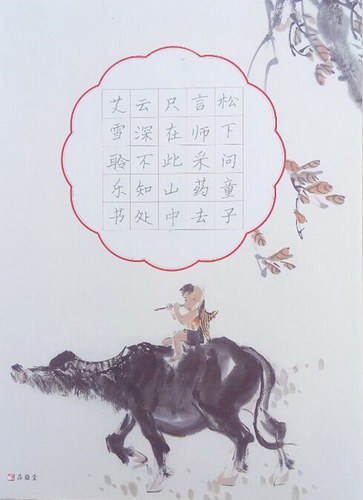 松下问童子
言师采药去
只在此山中
云深不知处
艾雪聆乐书